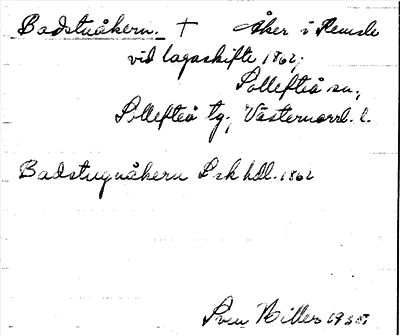 Badstuåkern. † Åker i Remsle
vid lagaskifte 1862;
Sollefteå sn.,
Sollefteå tg., Västernorrl. l.
Badstuguåkern Lsk hdl. 1862
Sven Hiller